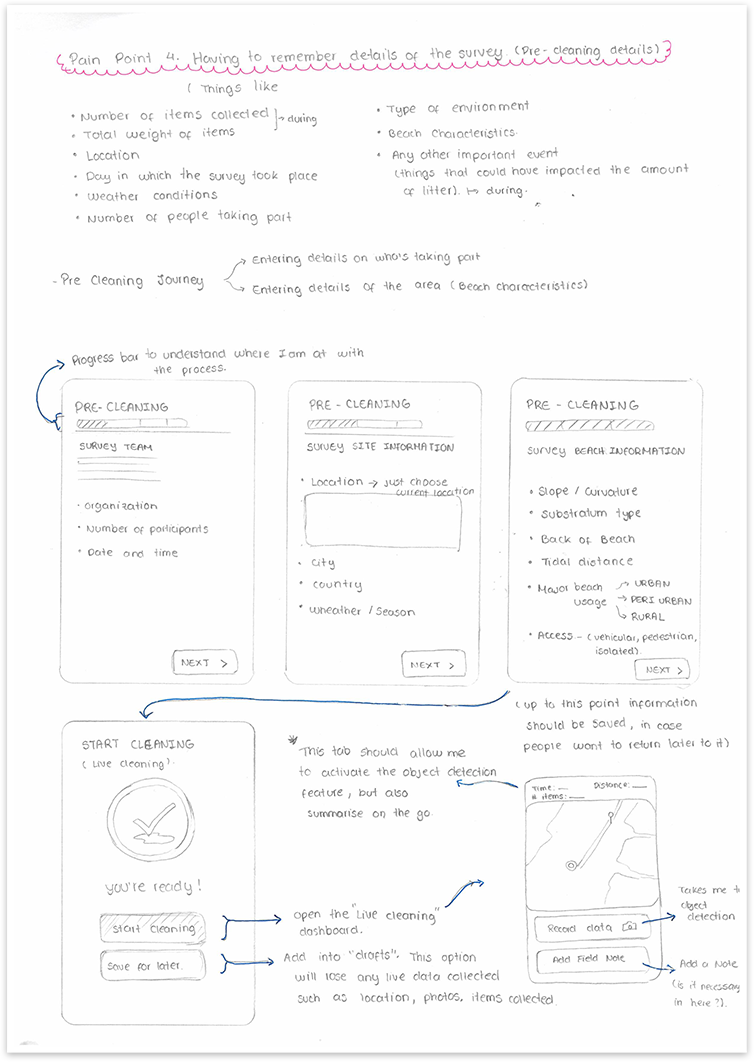 Pain Point 4. Having to remember details of the survey. (Pre-cleaning details)
(Things like
• Number of items collected
• Total weight of items
→ during
• Location
• Day in which the survey took place
• Weather conditions
• Number of people taking part
• Type of environment
• Beach characteristics.
• Any other important event
(things that could have impacted the amount
of litter). ↦ during.
- Pre Cleaning Journey
Entering details on who's taking part
Entering details of the area (Beach characteristics)
Progress bar to understand where I am at with
the process.
PRE-CLEANING
SURVEY TEAM
• Organization
• Number of participants
• Date and time
NEXT >
PRE-CLEANING
SURVEY SITE INFORMATION
• Location → just choose
current location
• City
• Country
• Wheather / Season
NEXT >
PRE-CLEANING
SURVEY BEACH INFORMATION
• Slope / Curvature
• Substratum type
• Back of Beach
• Tidal distance
• Major beach
usage
→ URBAN
→ PERI URBAN
→ RURAL
• Access - (vehicular, pedestrian,
isolated).
NEXT >
(up to this point information
should be saved, in case
people want to return later to it)
START CLEANING
(Live cleaning).
you're ready!
Start cleaning
Save for later.
* This tab should allow me
to activate the object detection
feature, but also
summarise on the go.
open the "Live cleaning"
dashboard.
Add into "drafts". This option
will lose any live data collected
such as location, photos, items collected.
Time: __ Distance: __
# items: __
Record data
Add Field Note
Takes me to
object
detection
Add a Note
(is it necessary
in here?).